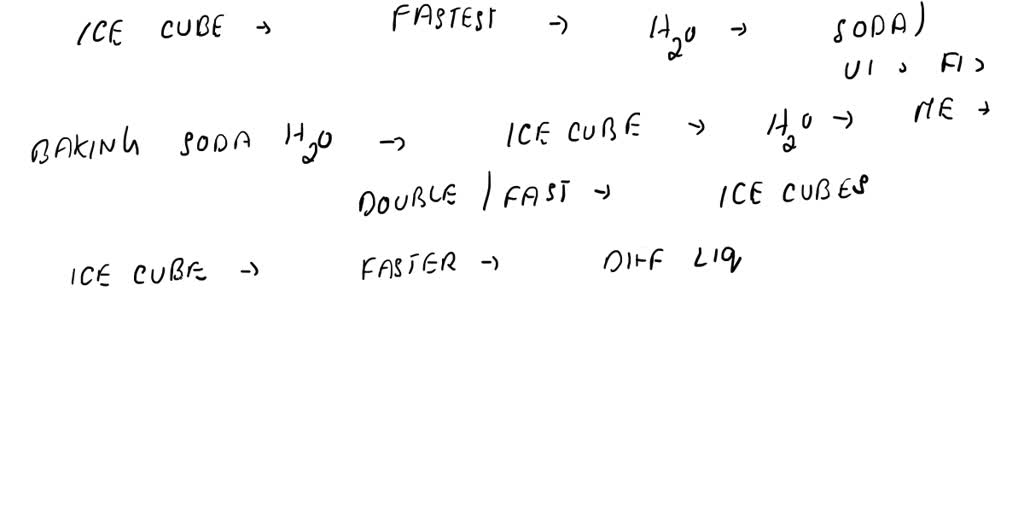 ICE CUBE → FASTEST → H₂O → SODA)
UI , FI >
BAKING SODA H₂O → ICE CUBE → H₂O → ME →
DOUBLE / FAST → ICE CUBES
ICE CUBE → FASTER → DIFF LIQ